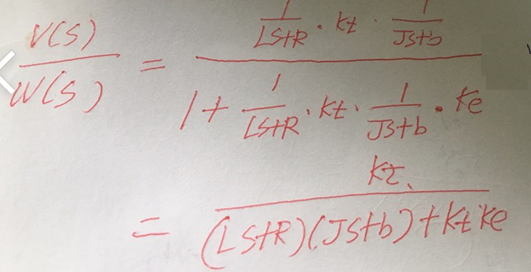 V(S)/W(S) = (1/(LS+R) · kt · 1/(JS+b)) / (1 + 1/(LS+R) · kt · 1/(JS+b) · ke)
= kt / ((LS+R)(JS+b)+kt ke)